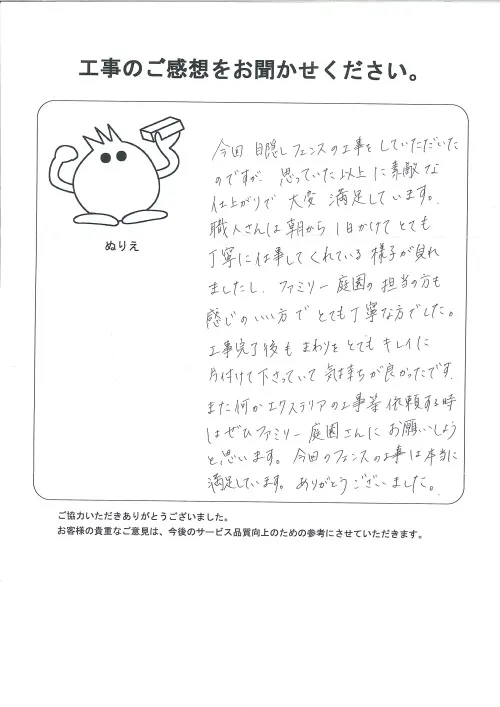 工事のご感想をお聞かせください。
ぬりえ
今回 目隠しフェンスの工事をしていただいた
のですが、思っていた以上に素敵な
仕上がりで 大変 満足しています。
職人さんは朝から1日かけてとても
丁寧に仕事してくれている様子が見れ
ましたし、ファミリー庭園の担当の方も
感じのいい方で とても丁寧な方でした。
工事完了後も まわりを とても キレイに
片付けて下さっていて 気持ちが良かったです。
また何かエクステリアの工事等 依頼する時
はぜひファミリー庭園さんに お願いしよう
と思います。今回のフェンスの工事は本当に
満足しています。ありがとうございました。
ご協力いただきありがとうございました。
お客様の貴重なご意見は、今後のサービス品質向上のための参考にさせていただきます。